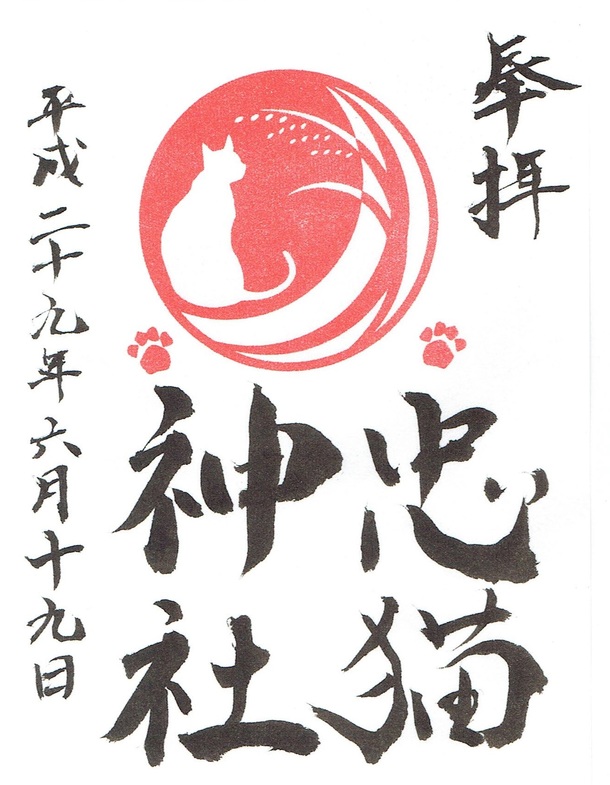 奉拝
忠猫
神社
平成二十九年六月十九日